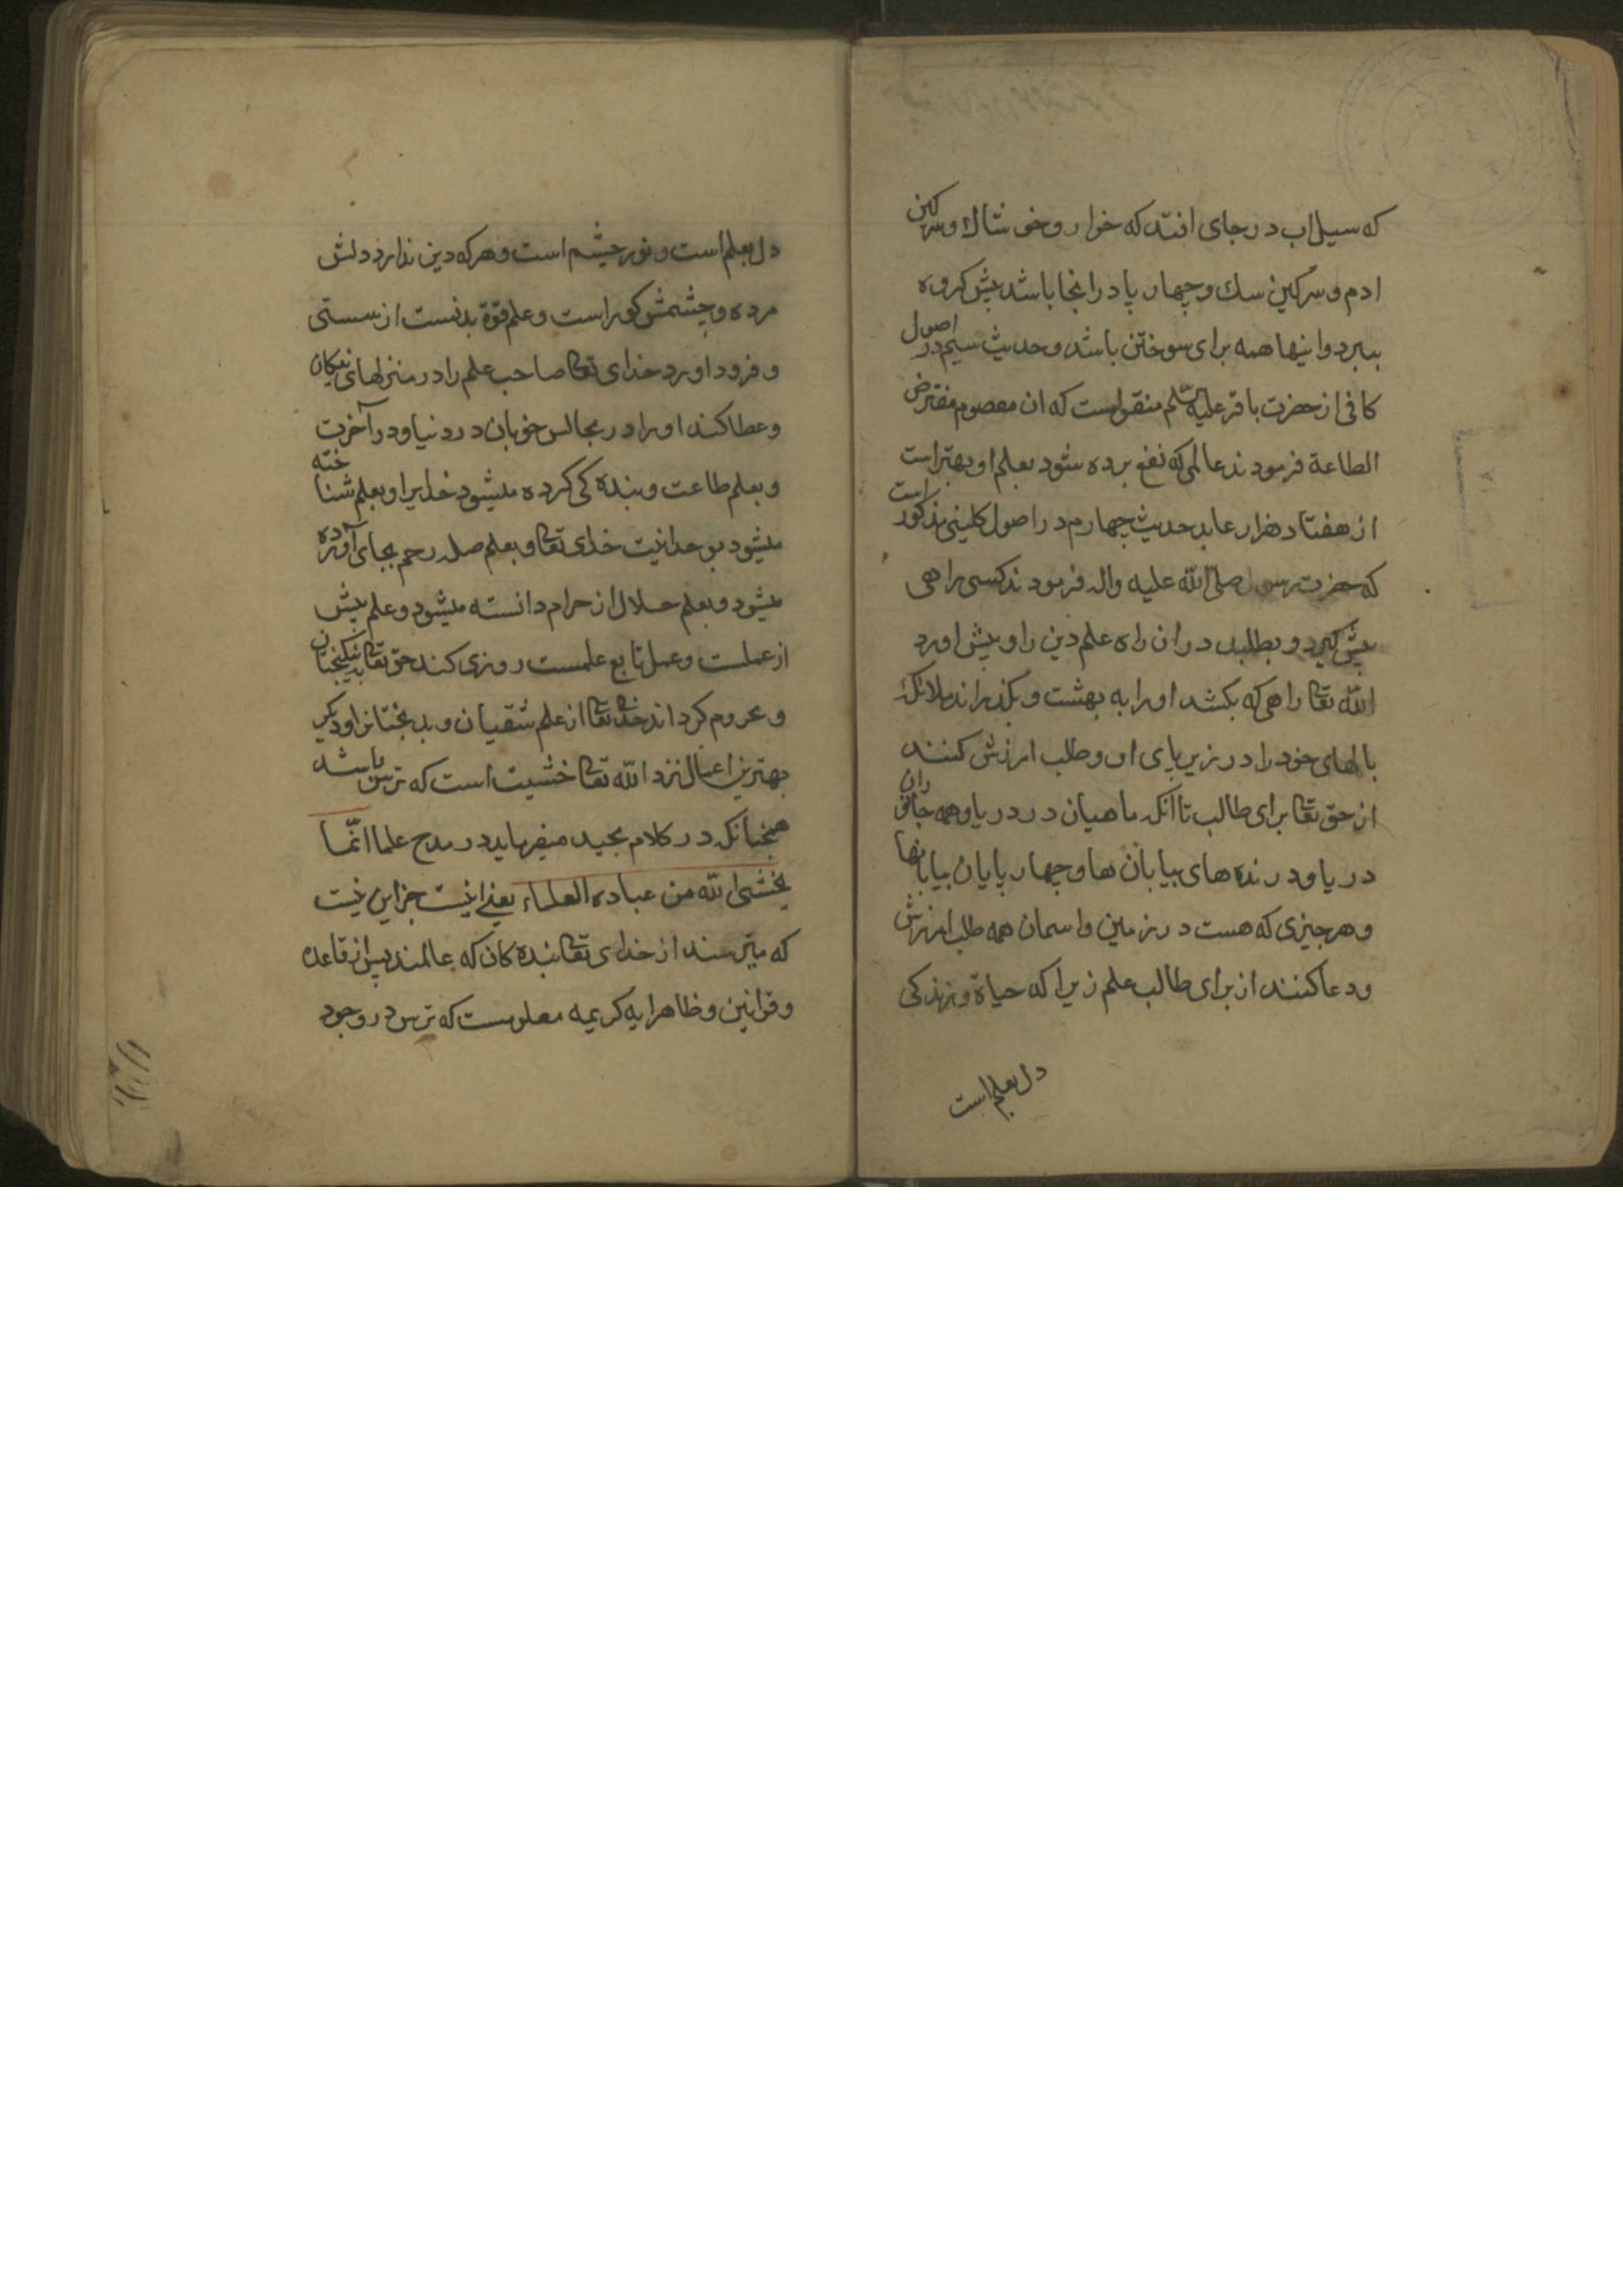 که سیل اب در جای افتد که خوار و خی شاك و سرکین
ادم و سرکین سك و چهار پا در انجا باشد پیش کروه
ببرد و اینها همه برای سوختن باشد و حدیث سیم در اصول
کافی از حضرت باقر علیه السّلم منقولست که ان معصوم مفترض
الطاعة فرمودند عالمی که نفع برده شود بعلم او بهتر است
از هفتاد هزار عابد حدیث چهارم در اصول کلینی مذکور است
که حضرت رسول صلی الله علیه واله فرمودند کسی راهی
پیش کیرد و بطلبد در ان راه علم دین را و پیش اورد
الله تعا راهی که بکشد اورا به بهشت و بکذراند ملائکه
بالهای خود را در زیر پای او و طلب امرزش کنند
از حق تعا برای طالب تا انکه ماهیان در دریا و همه جانوران
دریا و درنده های بیابان ها و چهار پایان بیابانها
و هر چیزی که هست در زمین و اسمان همه طلب امرزش
و دعا کنند از برای طالب علم زیرا که حیاة و زندکی
دل بعلم است
دل بعلم است و نور چشم است و هر که دین ندارد دلش
مرده و چشمش کور است و علم قوة بدنست از سستی
و فرود اورد خدای تعا صاحب علم را در منزلهای نیکان
و عطا کند اورا در مجالس خوبان در دنیا و در آخرت
و بعلم طاعت و بنده کی کرده میشود خدایرا و بعلم شناخته
میشود بوحدانیت خدای تعا و بعلم صله رحم بجای آورده
میشود و بعلم حلال از حرام دانسته میشود و علم پیش
از عملست و عمل تابع علمست روزی کند حق تعا بنیکبختان
و محروم کرداند خدا تعا از علم شقیان و بدبختانرا و دیکر
بهترین اعمال نزد الله تعا خشیت است که ترس باشد
همچنانکه در کلام مجید میفرماید در مدح علما انّما
یخشی الله من عباده العلماء یعنی اینست جز این نیست
که میترسند از خدای تعا بنده کان که عالمند پس از قاعده
و قوانین و ظاهر ایه کریمه معلومست که ترس در وجود